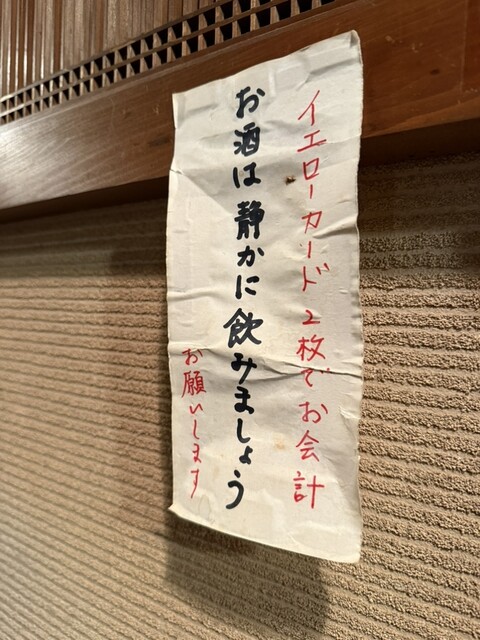 イエローカード2枚でお会計
お酒は静かに飲みましょう
お願いします